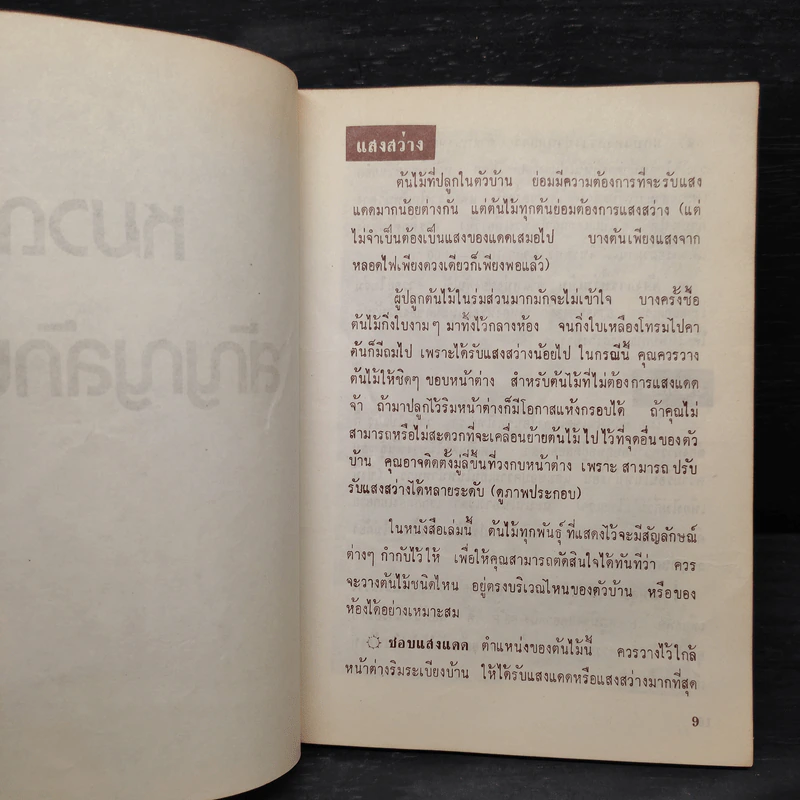 แสงสว่าง
ต้นไม้ที่ปลูกในตัวบ้าน ย่อมมีความต้องการที่จะรับแสง
แดดมากน้อยต่างกัน แต่ต้นไม้ทุกต้นย่อมต้องการแสงสว่าง (แต่
ไม่จำเป็นต้องเป็นแสงของแดดเสมอไป บางต้นเพียงแสงจาก
หลอดไฟเพียงดวงเดียวก็เพียงพอแล้ว)
ผู้ปลูกต้นไม้ในร่มส่วนมากมักจะไม่เข้าใจ บางครั้งซื้อ
ต้นไม้กิ่งใบงามๆ มาทิ้งไว้กลางห้อง จนกิ่งใบเหลืองโทรมไปคา
ต้นก็มีถมไป เพราะได้รับแสงสว่างน้อยไป ในกรณีนี้ คุณควรวาง
ต้นไม้ให้ชิดๆ ขอบหน้าต่าง สำหรับต้นไม้ที่ไม่ต้องการแสงแดด
จ้า ถ้ามาปลูกไว้ริมหน้าต่างก็มีโอกาสแห้งกรอบได้ ถ้าคุณไม่
สามารถหรือไม่สะดวกที่จะเคลื่อนย้ายต้นไม้ไปไว้ที่จุดอื่นของตัว
บ้าน คุณอาจติดตั้งมู่ลี่ขึ้นที่วงกบหน้าต่าง เพราะสามารถปรับ
รับแสงสว่างได้หลายระดับ (ดูภาพประกอบ)
ในหนังสือเล่มนี้ ต้นไม้ทุกพันธุ์ที่แสดงไว้จะมีสัญลักษณ์
ต่างๆ กำกับไว้ให้ เพื่อให้คุณสามารถตัดสินใจได้ทันทีว่า ควร
จะวางต้นไม้ชนิดไหน อยู่ตรงบริเวณไหนของตัวบ้าน หรือของ
ห้องได้อย่างเหมาะสม
ชอบแสงแดด ตำแหน่งของต้นไม้นี้ ควรวางไว้ใกล้
หน้าต่างริมระเบียงบ้าน ให้ได้รับแสงแดดหรือแสงสว่างมากที่สุด
9